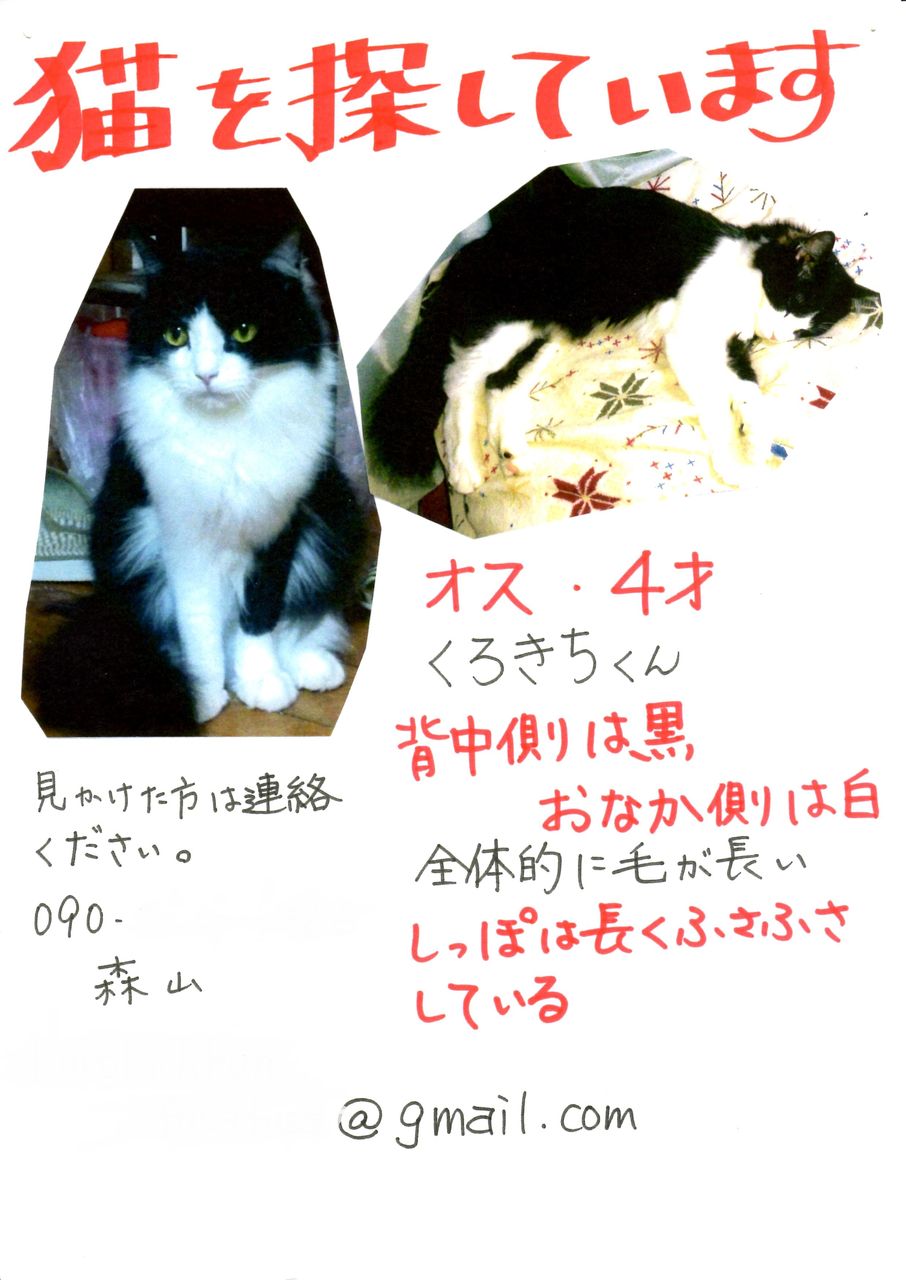 猫を探しています
オス・4才
くろきちくん
背中側は黒
おなか側は白
全体的に毛が長い
しっぽは長くふさふさ
している
見かけた方は連絡
ください。
090-
森山
@gmail.com